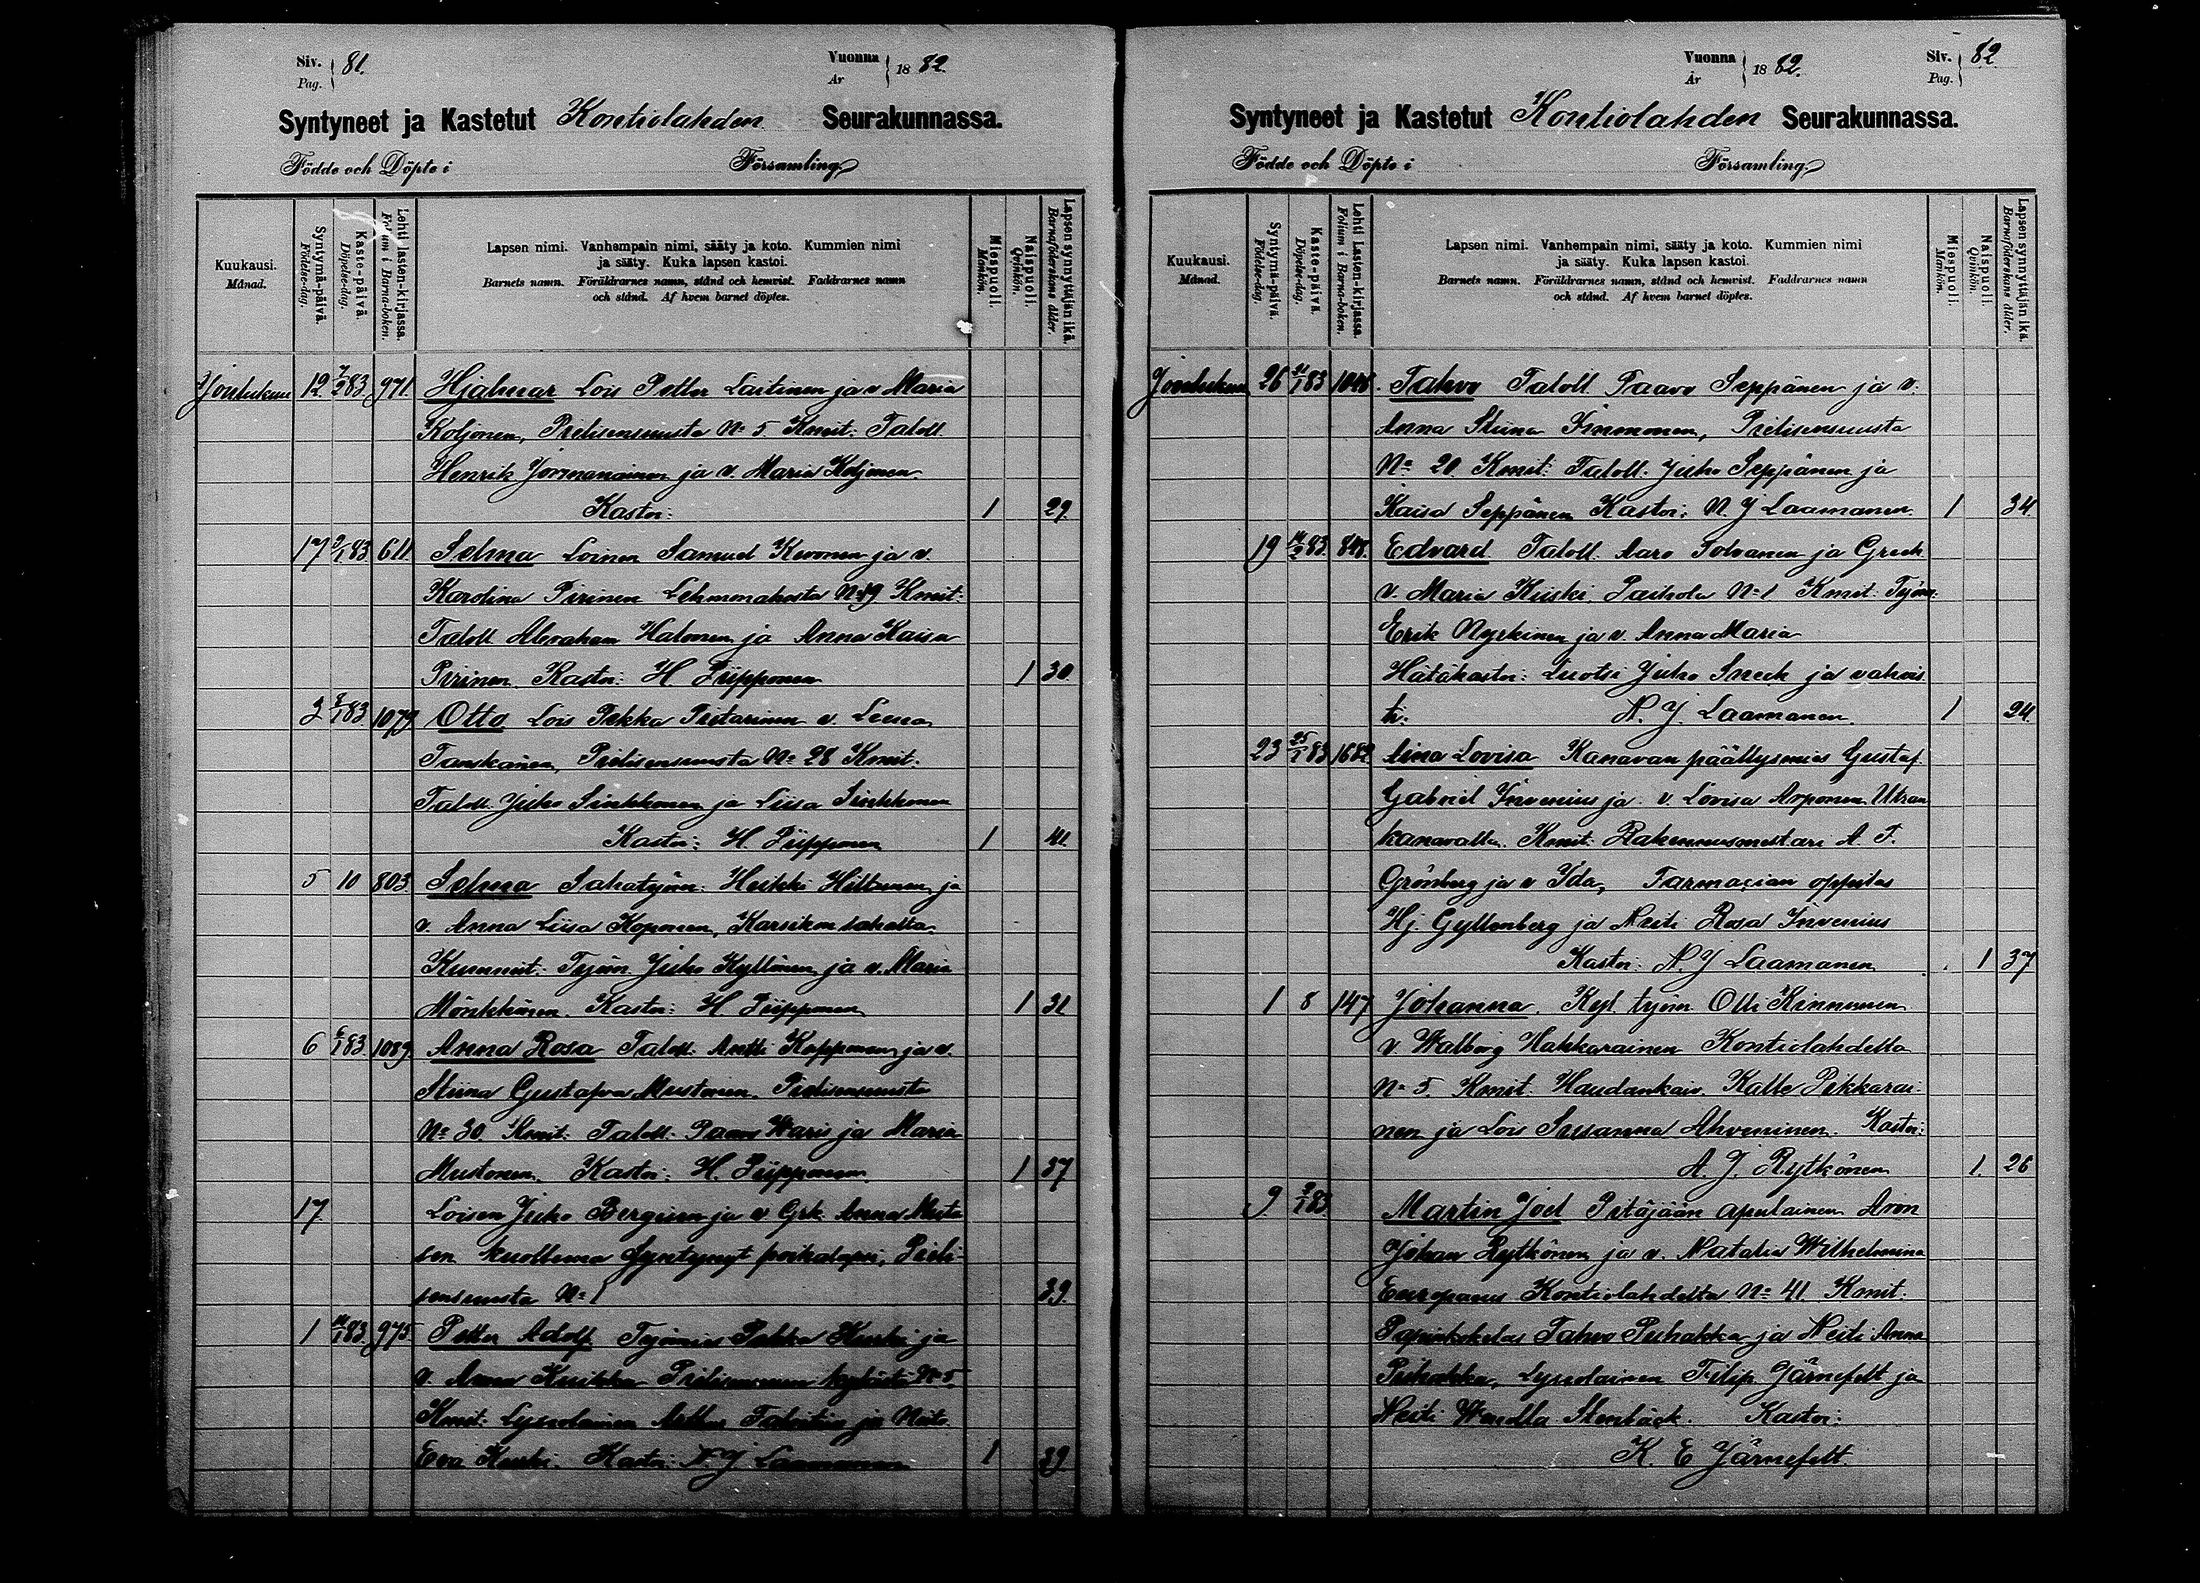 Siv. 81.
Pag.
Vuonna 1882.
År
Syntyneet ja Kastetut Kontiolahden Seurakunnassa.
Födde och Döpte i Församling.
Kuukausi.
Månad.
Syntymä-päivä.
Födelse-dag.
Kaste-päivä.
Döpelse-dag.
Lehti lasten-kirjassa.
Folium i Barna-boken.
Lapsen nimi. Vanhempain nimi, sääty ja koto. Kummien nimi
ja sääty. Kuka lapsen kastoi.
Barnets namn. Föräldrarnes namn, stånd och hemvist. Faddrarnes namn
och stånd. Af hvem barnet döptes.
Miespuoli.
Mankön.
Naispuoli.
Qvinkön.
Lapsen synnyttäjän ikä.
Barnaföderskans ålder.
Joulukuu 12 7/2 83 971 Hjalmar Lois Petter Lartinen ja v Maria
Koljonen, Pielisensuusta No 5 Kmit: Taloll.
Henrik Jormanainen ja v. Maria Koljonen.
Kastoi: 1 29
17 2/1 83 611 Selma Loinen Samuel Kervonen ja v.
Karolina Pirinen Lehmonahosta No 19 Kmit:
Taloll Abraham Halonen ja Anna Kaisa
Pirinen. Kastoi: H Piipponen 1 30
2 7/1 83 1079 Otto Lois Pekka Pietarinen v. Leena
Tanskanen, Pielisensuusta No 28 Kmit:
Taloll Juho Sinkkonen ja Liisa Sinkkonen
Kastoi: H. Piipponen 1 41
5 10 803 Selma Sahatyöm: Heikki Hiltunen ja
v. Anna Liisa Koponen, Karsikon sahalta
Kummit: Työm Juho Kyllönen ja v. Maria
Mönkkönen. Kastoi: H Piipponen 1 31
6 6/1 83 1089 Anna Rosa Taloll. Antti Kopponen ja v.
Stiina Gustafva Mustonen. Pielisensuusta
No 30 Kmit: Taloll. Paavo Waris ja Maria
Mustonen. Kastoi: H. Piipponen 1 37
17 Loisen Juho Bergiin ja v Grk. Anna Musta
sen kuolleena Syntynyt poikalapsi, Pieli-
sensuusta No 1 39.
1 14/1 83 975 Petter Adolf Työmies Pekka Kuski ja
v. Anna Kuikka Pielisensuun kylästä No 5.
Kmit: Lyseolainen Arthur Talvitius ja Neito
Eva Kuski. Kastoi: N. J Laamanen 1 39
Vuonna 1882.
År
Siv. 82
Pag.
Syntyneet ja Kastetut Kontiolahden Seurakunnassa.
Födde och Döpte i Församling.
Kuukausi.
Månad.
Syntymä-päivä.
Födelse-dag.
Kaste-päivä.
Döpelse-dag.
Lehti Lasten-kirjassa.
Folium i Barna-boken.
Lapsen nimi. Vanhempain nimi, sääty ja koto. Kummien nimi
ja sääty. Kuka lapsen kastoi.
Barnets namn. Föräldrarnes namn, stånd och hemvist. Faddrarnes namn
och stånd. Af hvem barnet döptes.
Miespuoli.
Mankön.
Naispuoli.
Qvinkön.
Lapsen synnyttäjän ikä.
Barnaföderskans ålder.
Joulukuu 26 21/1 83 Tahvo Taloll. Paavo Seppänen ja v.
Anna Stiina Immonen, Pielisensuusta
No 20 Kmit: Taloll. Juho Seppänen ja
Kaisa Seppänen Kastoi: N. J Laamanen 1 34
19 14/2 83 848 Edvard Taloll. Aaro Tolvanen ja Greek
v. Maria Kiiski, Paihola No 1 Kmit: Työm.
Erik Nyrkinen ja v. Anna Maria
Hätäkastoi: Luotsi Juho Sneck ja vahvis
ti: N. J. Laamanen. 1 24
23 25/1 83 1682 Aina Lovisa Kanavan päällysmies Gustaf
Gabriel Invenius ja v. Lovisa Arponen Utran
kanavalta. Kmit: Rakennusmestari A. F.
Grönberg ja v Ida, Farmasian oppilas
Hj. Gyllenberg ja Neiti Rosa Invenius
Kastoi: N. J Laamanen 1 37
1 8 147 Johanna. Kyl. työm Olli Kinnunen
v Walborg Hakkarainen Kontiolahdelta
No 5. Kmit: Haudankaiv. Kalle Pikkarai-
nen ja Lois Susanna Ahveninen. Kastoi:
A. J. Rytkönen 1. 26
9 3/1 83 Martin Joel Pitäjään apulainen Aron
Johan Rytkönen ja v. Natalia Wilhelmina
Europaeus Kontiolahdelta No 41 Kmit:
Papinkokelas Tahvo Puhakka ja Neiti Anna
Puhakka, Lyseolainen Filip Järnefelt ja
Neiti Wendla Stenbäck. Kastoi:
K. E Järnefelt.